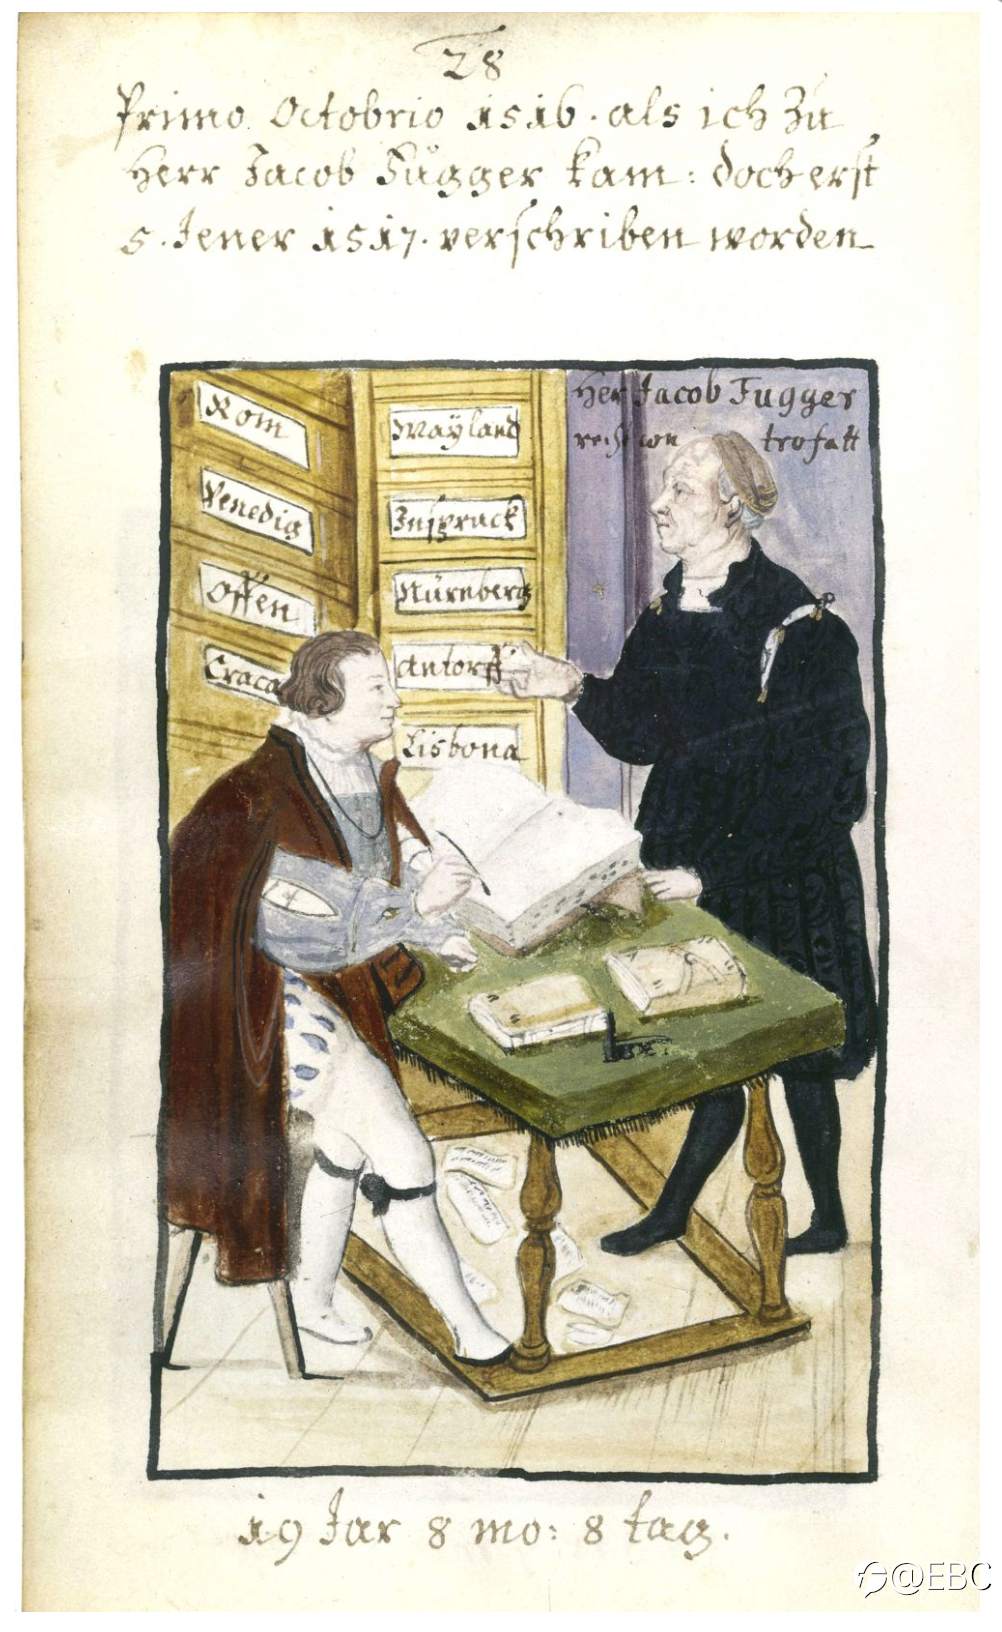 28
Primo Octobrio 1516. als ich zu
Herr Jacob Fugger kam: doch erst
5. Jener 1517. verschriben worden
Her Jacob Fugger
Rom
Venedig
Offen
Craca
Mayland
Inspruck
Nürnberg
Antorff
Lisbona
19 Jar 8 mo: 8 tag.
@EBC